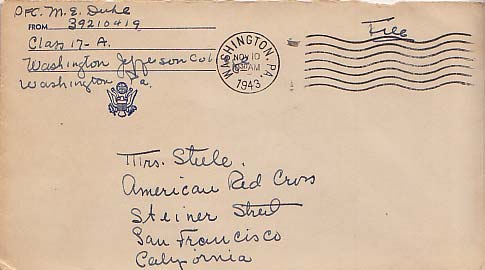 PFC. M. E. Duke
FROM 39210419
Class 17-A.
Washington Jefferson Col
Washington Pa.
WASHINGTON, PA.
NOV 10
AM
1943
Free
Mrs. Steele.
American Red Cross
Steiner Street
San Francisco
California